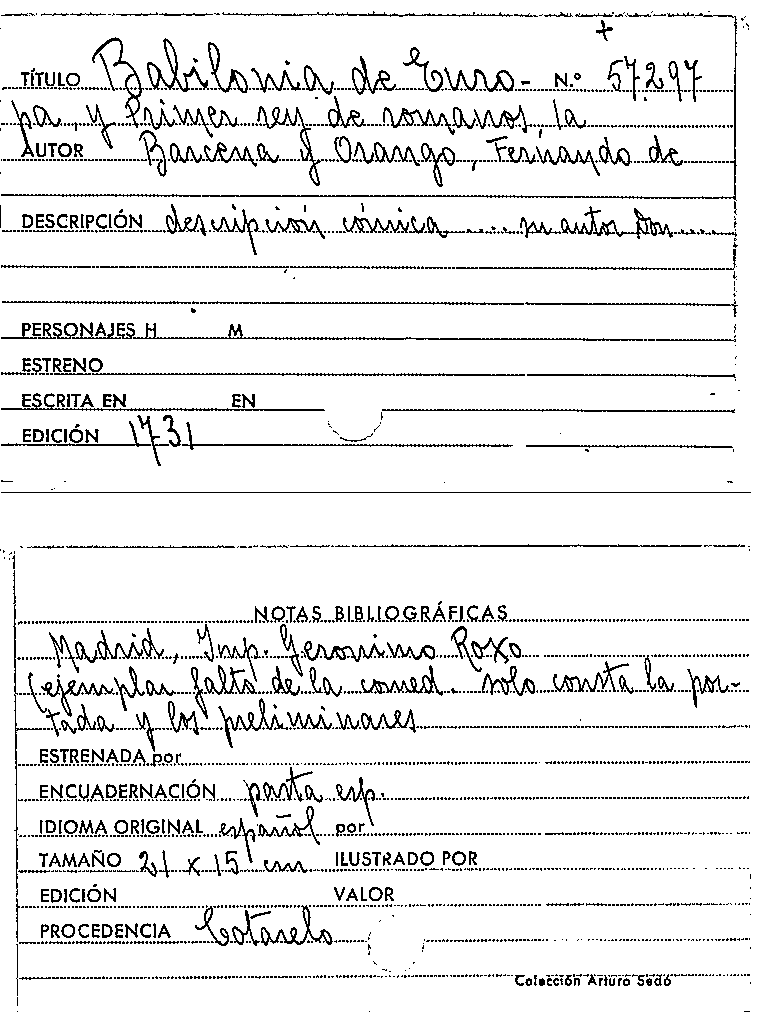 +
TÍTULO Babilonia de Euro- N.º 57297
pa, y Primer rey de romanos, la
AUTOR Barcena y Orango, Fernando de
DESCRIPCIÓN descripción cómica .... su autor Don ....
PERSONAJES H M
ESTRENO
ESCRITA EN EN
EDICIÓN 1731
NOTAS BIBLIOGRÁFICAS
Madrid, Imp. Geronimo Roxo
(ejemplar falto de la comed. solo consta la por-
tada y los preliminares
ESTRENADA por
ENCUADERNACIÓN pasta esp.
IDIOMA ORIGINAL español por
TAMAÑO 21 x 15 cm ILUSTRADO POR
EDICIÓN VALOR
PROCEDENCIA Cotarelo
Colección Arturo Sedó